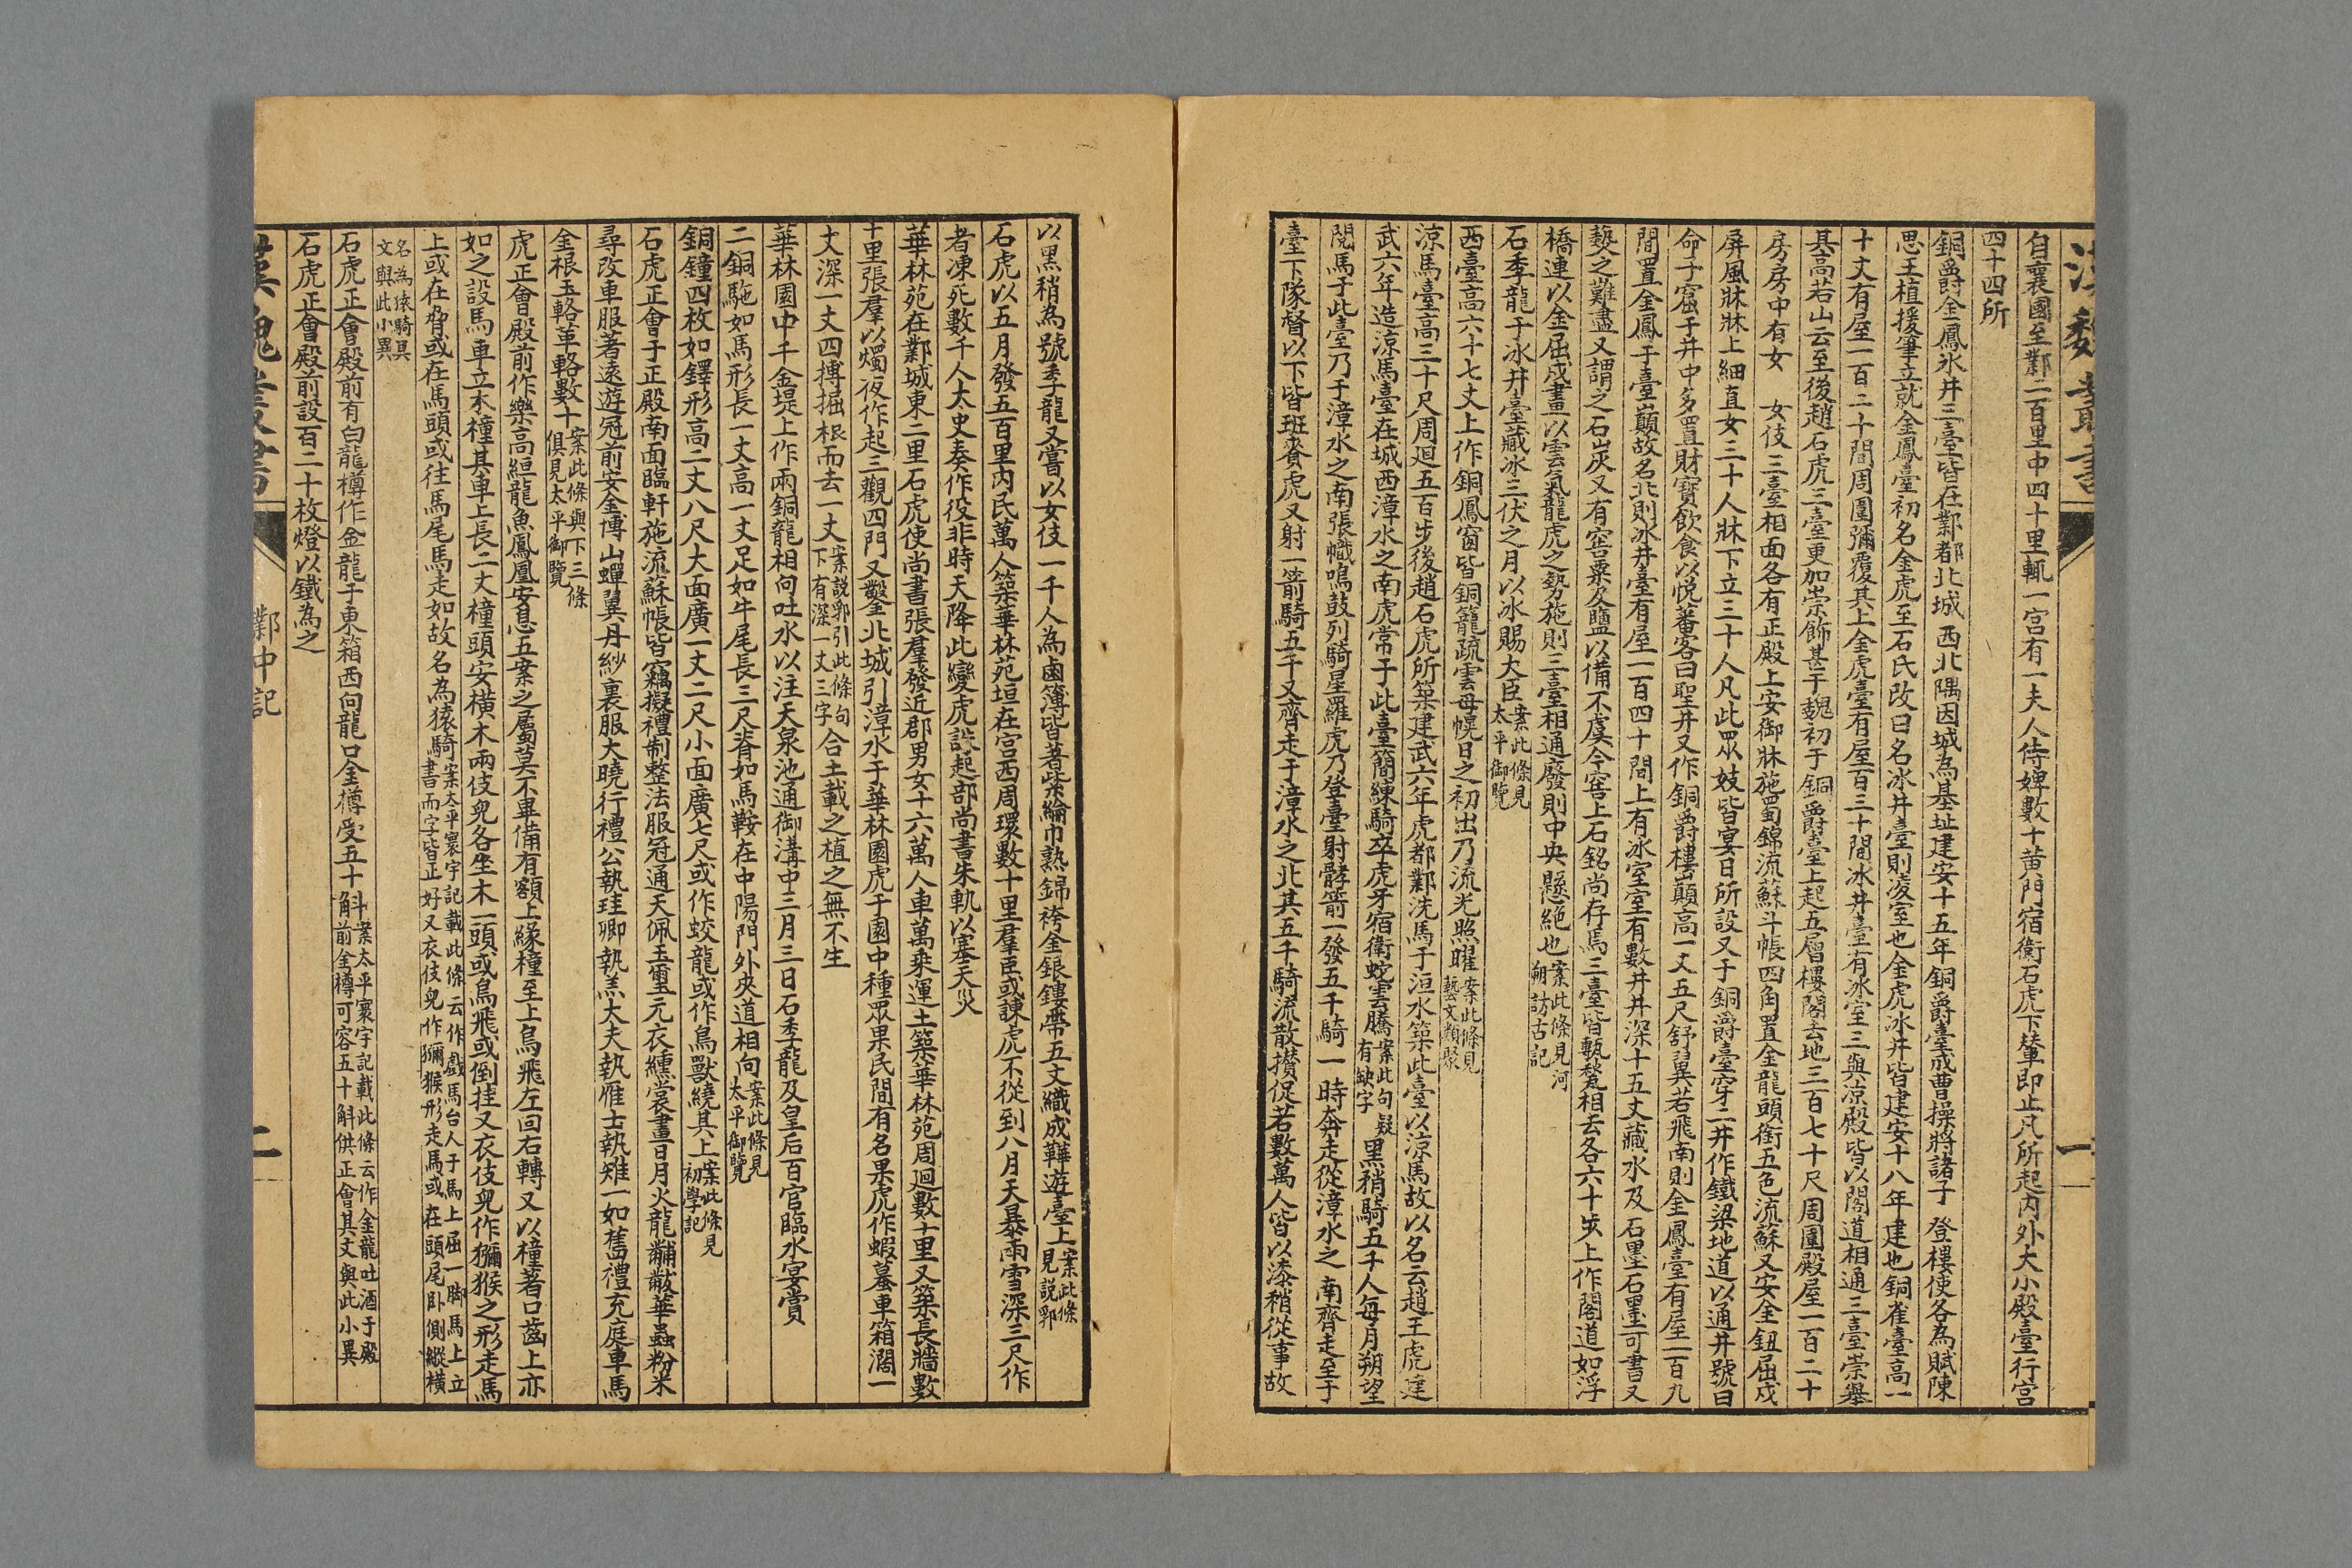 自襄國至鄴二百里中四十里輒一宮有一夫人侍婢數十黃門宿衛石虎下輦即止凡所起內外大小殿臺行宮
四十四所
銅爵金鳳氷井三臺皆在鄴都北城西北隅因城為基址建安十五年銅爵臺成曹操將諸子登樓使各為賦陳
思王植援筆立就金鳳臺初名金虎至石氏改曰名氷井臺則凌室也金虎氷井皆建安十八年建也銅雀臺高一
十丈有屋一百二十間周圍彌覆其上金虎臺有屋百三十間氷井臺有氷室三與凉殿皆以閣道相通三臺崇舉
其高若山云至後趙石虎三臺更加崇飾甚于魏初于銅爵臺上起五層樓閣去地三百七十尺周圍殿屋一百二十
房房中有女女伎三臺相面各有正殿上安御牀施蜀錦流蘇斗帳四角置金龍頭銜五色流蘇又安金鈕屈戍
屏風牀牀上細直女三十人牀下立三十人凡此眾妓皆宴日所設又于銅爵臺穿二井作鐵梁地道以通井號曰
命子窟于井中多置財寶飲食以悅蕃客曰聖井又作銅爵樓巔高一丈五尺舒翼若飛南則金鳳臺有屋一百九
間置金鳳于臺巔故名北則氷井臺有屋一百四十間上有氷室室有數井井深十五丈藏氷及石墨石墨可書又
爇之難盡又謂之石炭又有窖粟及鹽以備不虞今窖上石銘尚存焉三臺皆甎甃相去各六十步上作閣道如浮
橋連以金屈戍畫以雲氣龍虎之勢施則三臺相通廢則中央懸絕也案此條見河
朔訪古記
石季龍于冰井臺藏冰三伏之月以冰賜大臣案此條見
太平御覽
西臺高六十七丈上作銅鳳窗皆銅籠疏雲母幌日之初出乃流光照曜案此條見
藝文類聚
涼馬臺高三十尺周廻五百步後趙石虎所築建武六年虎都鄴洗馬于洹水築此臺以涼馬故以名云趙王虎建
武六年造涼馬臺在城西漳水之南虎常于此臺簡練騎卒虎牙宿衛蛇雲騰案此句疑
有缺字黑矟騎五千人每月朔望
閱馬于此臺乃于漳水之南張幟鳴鼓列騎星羅虎乃登臺射髇箭一發五千騎一時奔走從漳水之南齊走至于
臺下隊督以下皆班賚虎又射一箭騎五千又齊走于漳水之北其五千騎流散攢促若數萬人皆以漆矟從事故
漢魏叢書
一
以黑矟為號季龍又嘗以女伎一千人為鹵簿皆著紫綸巾熟錦袴金銀鏤帶五文織成鞾遊臺上案此條
見說郛
石虎以五月發五百里內民萬人築華林苑垣在宮西周環數十里羣臣或諫虎不從到八月天暴雨雪深三尺作
者凍死數千人太史奏作役非時天降此變虎誅起部尚書朱軌以塞天災
華林苑在鄴城東二里石虎使尚書張羣發近郡男女十六萬人車萬乘運土築華林苑周廻數十里又築長牆數
十里張羣以燭夜作起三觀四門又鑿北城引漳水于華林園虎于園中種眾果民間有名果虎作蝦蟇車箱濶一
丈深一丈四摶掘根而去一丈案說郛引此條句
下有深一丈三字合土載之植之無不生
華林園中千金堤上作兩銅龍相向吐水以注天泉池通御溝中三月三日石季龍及皇后百官臨水宴賞
二銅駞如馬形長一丈高一丈足如牛尾長三尺脊如馬鞍在中陽門外夾道相向案此條見
太平御覽
銅鐘四枚如鐸形高二丈八尺大面廣一丈二尺小面廣七尺或作蛟龍或作鳥獸繞其上案此條見
初學記
石虎正會于正殿南面臨軒施流蘇帳皆竊擬禮制整法服冠通天佩玉璽元衣纁裳畫日月火龍黼黻華蟲粉米
尋改車服著遠遊冠前安金博山蟬翼丹紗裏服大曉行禮公執珪卿執羔大夫執雁士執雉一如舊禮充庭車馬
金根玉輅革輅數十案此條與下三條
俱見太平御覽
虎正會殿前作樂高絙龍魚鳳凰安息五案之屬莫不畢備有額上緣橦至上鳥飛左回右轉又以橦著口齒上亦
如之設馬車立木橦其車上長二丈橦頭安橫木兩伎兒各坐木一頭或鳥飛或倒挂又衣伎兒作獼猴之形走馬
上或在脅或在馬頭或往馬尾馬走如故名為猿騎案太平寰宇記載此條云作戲馬台人于馬上屈一脚馬上立
書而字皆正好又衣伎兒作獼猴形走馬或在頭尾臥側縱橫
名為猿騎具
文與此小異
石虎正會殿前有白龍樽作金龍于東箱西向龍口金樽受五十斛案太平寰宇記載此條云作金龍吐酒于殿
前金樽可容五十斛供正會其文與此小異
石虎正會殿前設百二十枚燈以鐵為之
漢魏叢書
鄴中記
二